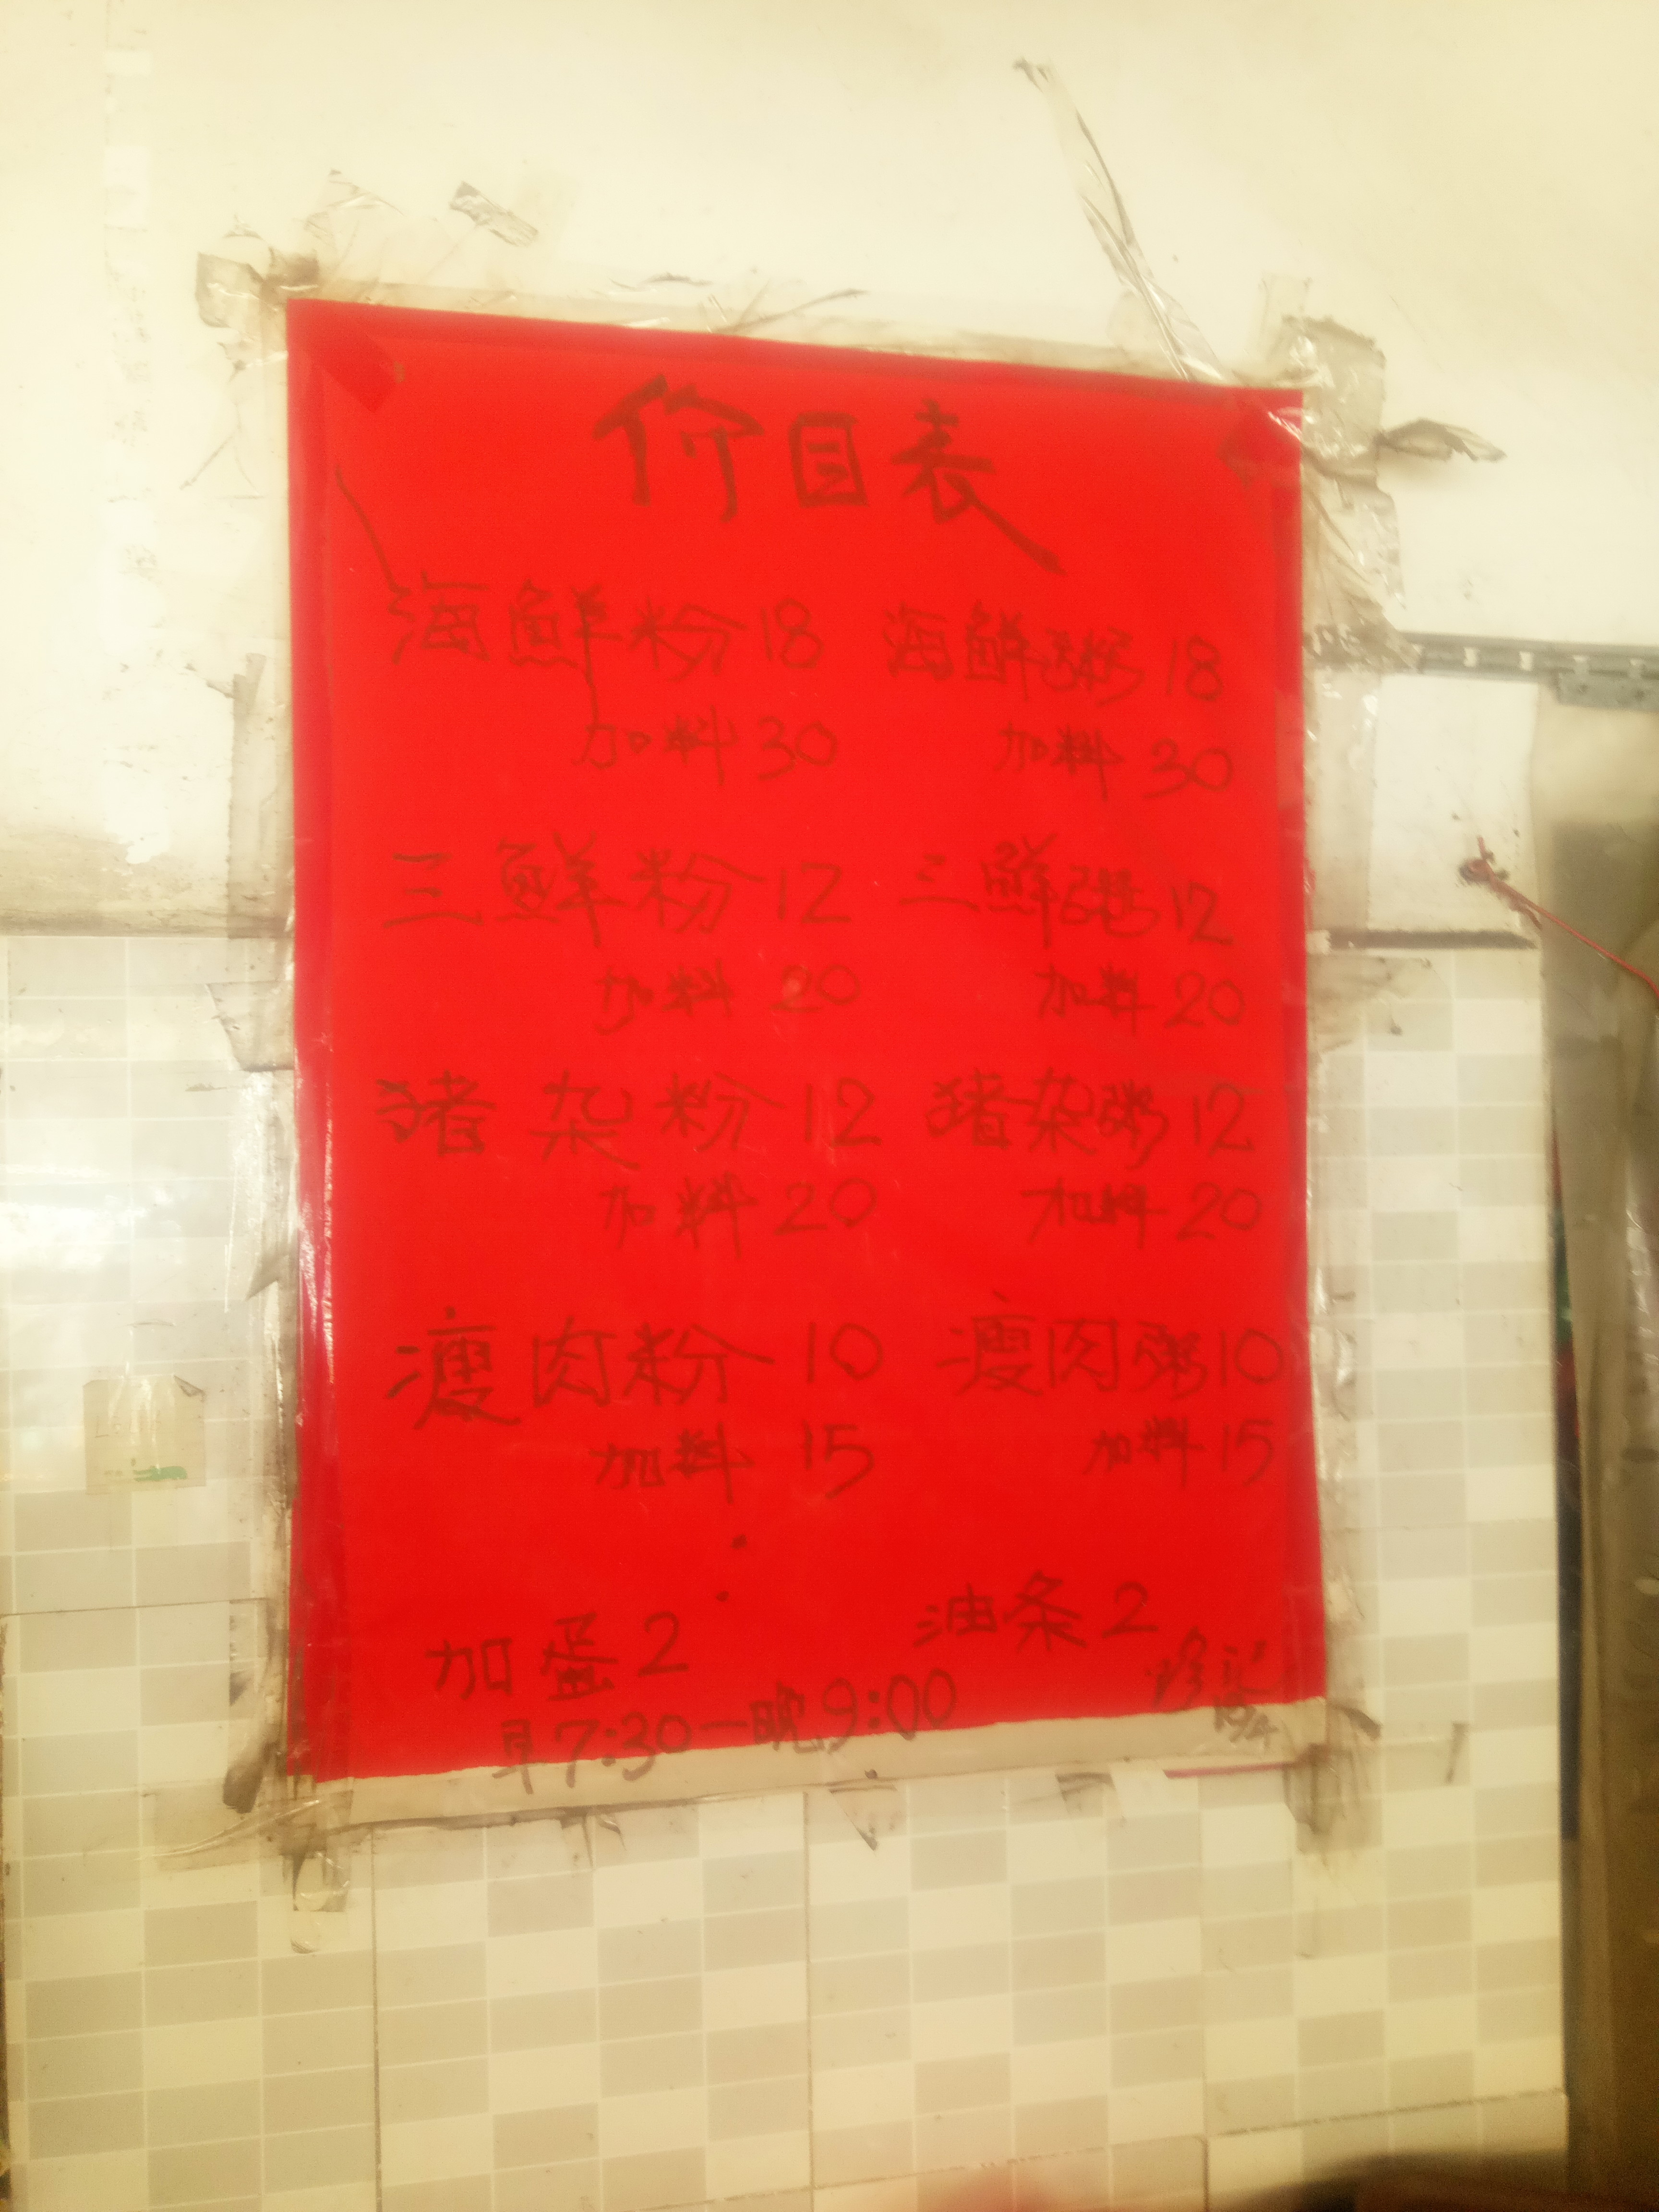 价目表
海鲜粉18 海鲜粥18
加料30 加料30
三鲜粉12 三鲜粥12
加料20 加料20
猪杂粉12 猪杂粥12
加料20 加料20
瘦肉粉10 瘦肉粥10
加料15 加料15
加蛋2 油条2
早7:30一晚9:00